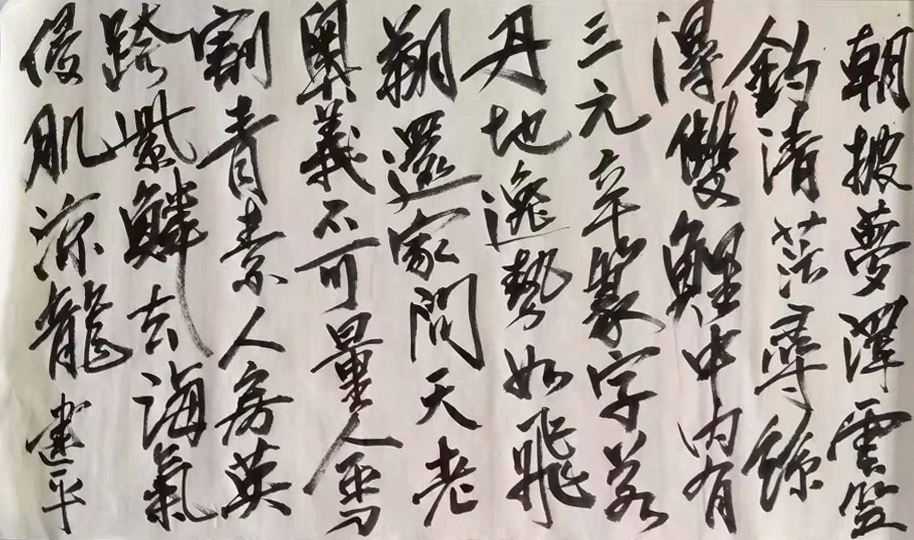 朝披夢澤雲笠
釣清茫尋絲
得雙鯉中内有
三元章篆字若
丹地逸勢如飛
翔還家問天老
奧義不可量人
割青素人房英
跨紫鱗去海氣
侵肌涼龍 建平